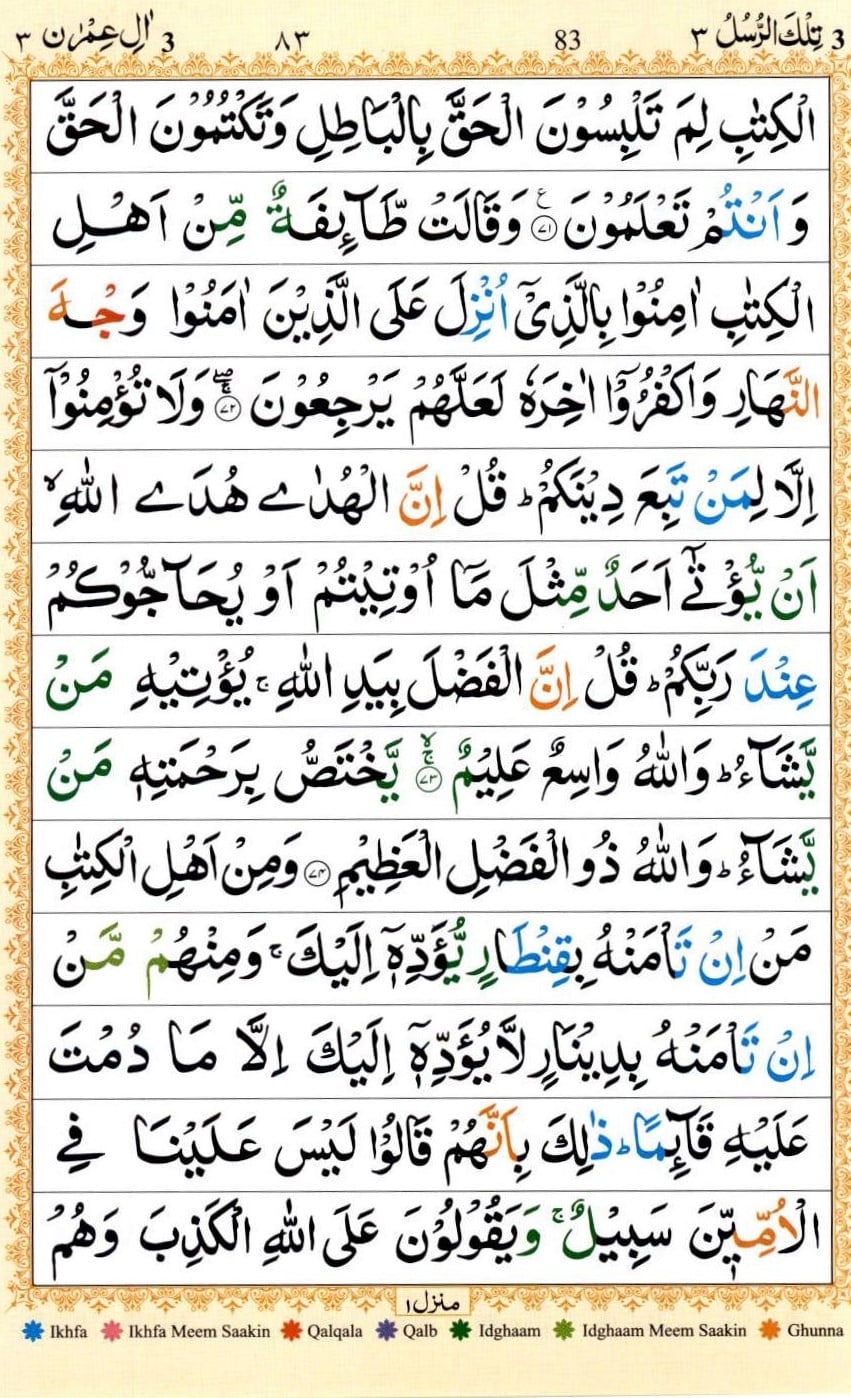 3 تِلْكَ الرُّسُلُ ٣ 83 ٨٣ 3 اٰلِ عِمْرٰن ٣
الْكِتٰبِ لِمَ تَلْبِسُوْنَ الْحَقَّ بِالْبَاطِلِ وَتَكْتُمُوْنَ الْحَقَّ
وَاَنْتُمْ تَعْلَمُوْنَ ﴿٧١﴾ ع وَقَالَتْ طَّآئِفَةٌ مِّنْ اَهْلِ
الْكِتٰبِ اٰمِنُوْا بِالَّذِيْٓ اُنْزِلَ عَلَى الَّذِيْنَ اٰمَنُوْا وَجْهَ
النَّهَارِ وَاكْفُرُوْٓا اٰخِرَهٗ لَعَلَّهُمْ يَرْجِعُوْنَ ﴿٧٢﴾ وَلَا تُؤْمِنُوْٓا
اِلَّا لِمَنْ تَبِعَ دِيْنَكُمْ ؕ قُلْ اِنَّ الْهُدٰى هُدَى اللّٰهِ ۙ
اَنْ يُّؤْتٰٓى اَحَدٌ مِّثْلَ مَاۤ اُوْتِيْتُمْ اَوْ يُحَآجُّوْكُمْ
عِنْدَ رَبِّكُمْ ؕ قُلْ اِنَّ الْفَضْلَ بِيَدِ اللّٰهِ ۚ يُؤْتِيْهِ مَنْ
يَّشَآءُ ؕ وَاللّٰهُ وَاسِعٌ عَلِيْمٌ ﴿٧٣﴾ ۙۚ يَّخْتَصُّ بِرَحْمَتِهٖ مَنْ
يَّشَآءُ ؕ وَاللّٰهُ ذُو الْفَضْلِ الْعَظِيْمِ ﴿٧٤﴾ وَمِنْ اَهْلِ الْكِتٰبِ
مَنْ اِنْ تَاْمَنْهُ بِقِنْطَارٍ يُّؤَدِّهٖٓ اِلَيْكَ ۚ وَمِنْهُمْ مَّنْ
اِنْ تَاْمَنْهُ بِدِيْنَارٍ لَّا يُؤَدِّهٖٓ اِلَيْكَ اِلَّا مَا دُمْتَ
عَلَيْهِ قَآئِمًا ؕ ذٰلِكَ بِاَنَّهُمْ قَالُوْا لَيْسَ عَلَيْنَا فِى
الْاُمِّيّٖنَ سَبِيْلٌ ۚ وَيَقُوْلُوْنَ عَلَى اللّٰهِ الْكَذِبَ وَهُمْ
منزل ١
Ikhfa Ikhfa Meem Saakin Qalqala Qalb Idghaam Idghaam Meem Saakin Ghunna